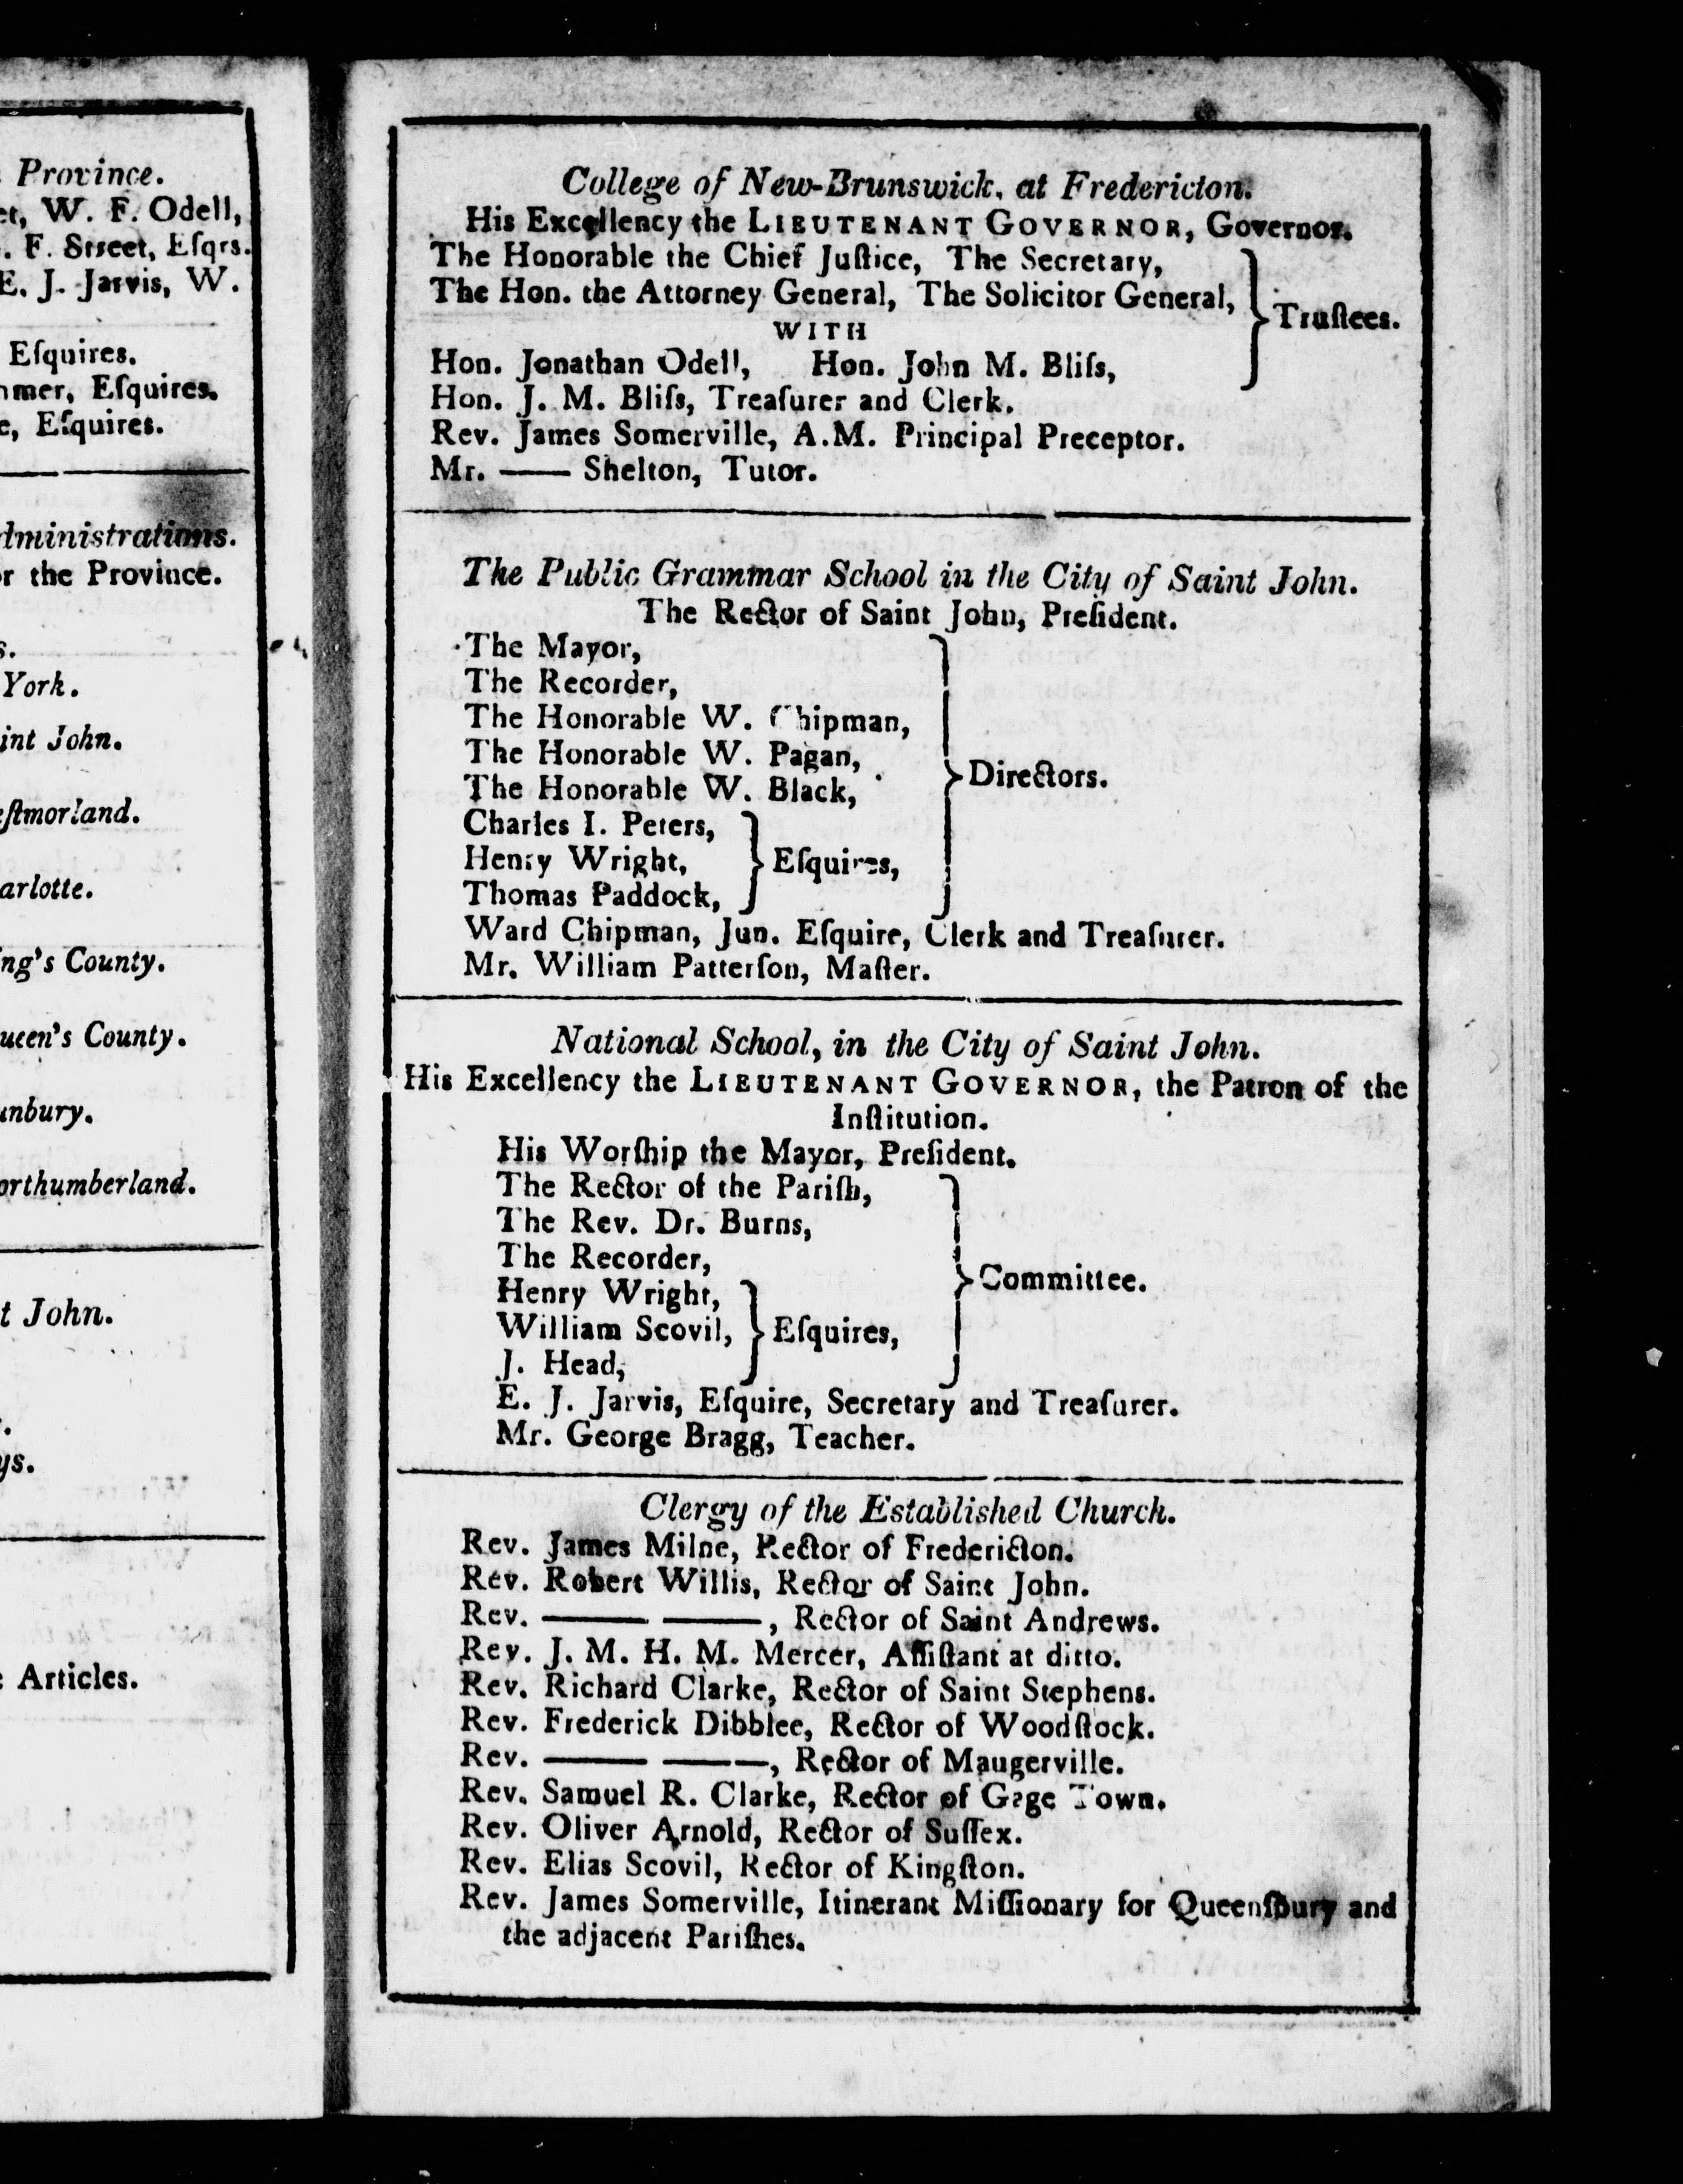 Province.
W. F. Odell,
F. Street, Eſqrs.
E. J. Jarvis, W.
Eſquires.
Eſquires.
Eſquires.
r the Province.
York.
John.
County.
County.
t John.
Articles.
College of New-Brunswick, at Fredericton.
His Excellency the LIEUTENANT GOVERNOR, Governor.
The Honorable the Chief Juſtice, The Secretary,
The Hon. the Attorney General, The Solicitor General,
WITH
Truſtees.
Hon. Jonathan Odell, Hon. John M. Bliſs,
Hon. J. M. Bliſs, Treaſurer and Clerk.
Rev. James Somerville, A.M. Principal Preceptor.
Mr. —— Shelton, Tutor.
The Public Grammar School in the City of Saint John.
The Rector of Saint John, Preſident.
The Mayor,
The Recorder,
The Honorable W. Chipman,
The Honorable W. Pagan,
The Honorable W. Black,
Directors.
Charles I. Peters,
Henry Wright,
Eſquires,
Thomas Paddock,
Ward Chipman, Jun. Eſquire, Clerk and Treaſurer.
Mr. William Patterſon, Maſter.
National School, in the City of Saint John.
His Excellency the LIEUTENANT GOVERNOR, the Patron of the
Inſtitution.
His Worſhip the Mayor, Preſident.
The Rector of the Pariſh,
The Rev. Dr. Burns,
The Recorder,
Committee.
Henry Wright,
William Scovil, Eſquires,
J. Head,
E. J. Jarvis, Eſquire, Secretary and Treaſurer.
Mr. George Bragg, Teacher.
Clergy of the Established Church.
Rev. James Milne, Rector of Fredericton.
Rev. Robert Willis, Rector of Saint John.
Rev. —— ——, Rector of Saint Andrews.
Rev. J. M. H. M. Mercer, Aſſiſtant at ditto.
Rev. Richard Clarke, Rector of Saint Stephens.
Rev. Frederick Dibblee, Rector of Woodſtock.
Rev. —— ——, Rector of Maugerville.
Rev. Samuel R. Clarke, Rector of Gage Town.
Rev. Oliver Arnold, Rector of Suſſex.
Rev. Elias Scovil, Rector of Kingſton.
Rev. James Somerville, Itinerant Miſſionary for Queenſbury and
the adjacent Pariſhes.